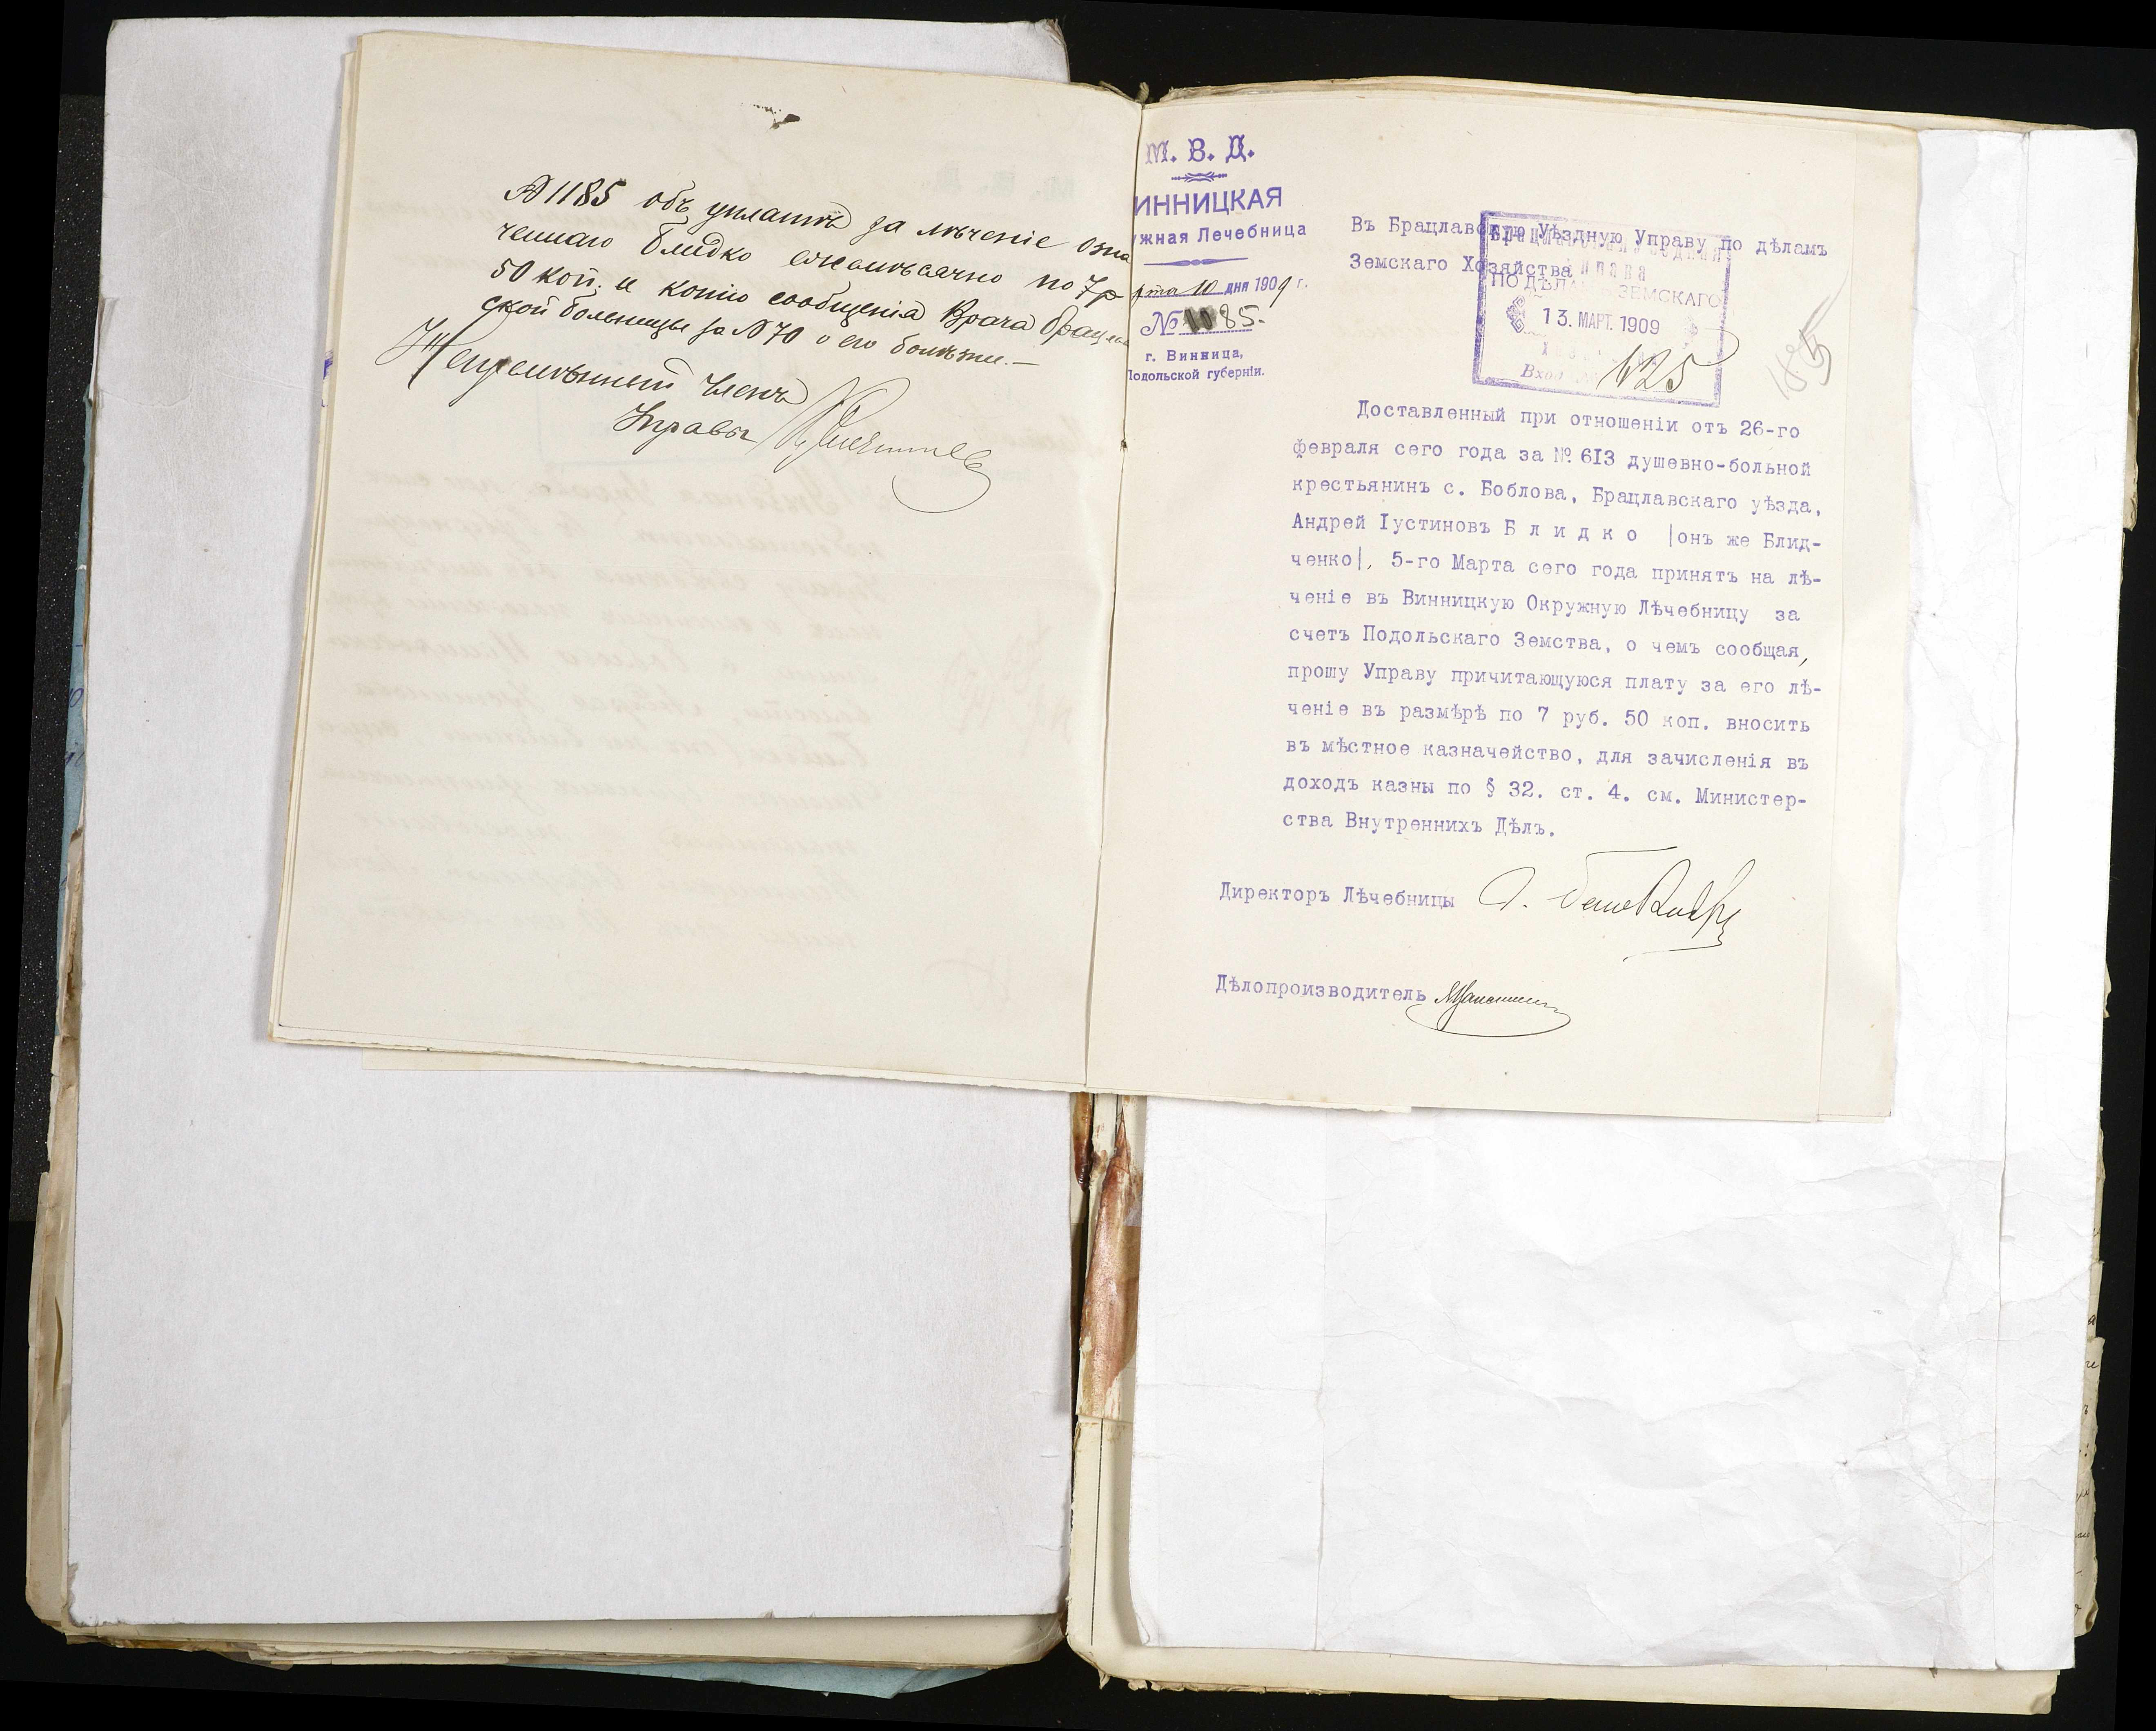 № 1185 объ уплатѣ за лѣченіе озна
ченнаго Блидко ежемѣсячно по 7 р
50 коп. и копію сообщенія Врача Брацлав
ской больницы за № 70 о его болѣзни.—
Непремѣнный Членъ
Управы
М. В. Д.
ИННИЦКАЯ
ужная Лечебница
рта 10 дня 1909 г.
№ 1185.
г. Винница,
Подольской губерніи.
Въ Брацлавскую Уѣздную Управу по дѣламъ
Земскаго Хозяйства
ПО ДѢЛАМ ЗЕМСКАГО
13. МАРТ. 1909
Вход
Доставленный при отношеніи отъ 26-го
февраля сего года за № 613 душевно-больной
крестьянинъ с. Боблова, Брацлавскаго уѣзда,
Андрей Іустиновъ Б л и д к о |онъ же Блид-
ченко|, 5-го Марта сего года принятъ на лѣ-
ченіе въ Винницкую Окружную Лѣчебницу за
счетъ Подольскаго Земства, о чемъ сообщая,
прошу Управу причитающуюся плату за его лѣ-
ченіе въ размѣрѣ по 7 руб. 50 коп. вносить
въ мѣстное казначейство, для зачисленія въ
доходъ казны по § 32. ст. 4. см. Министер-
ства Внутреннихъ Дѣлъ.
Директоръ Лѣчебницы
Дѣлопроизводитель